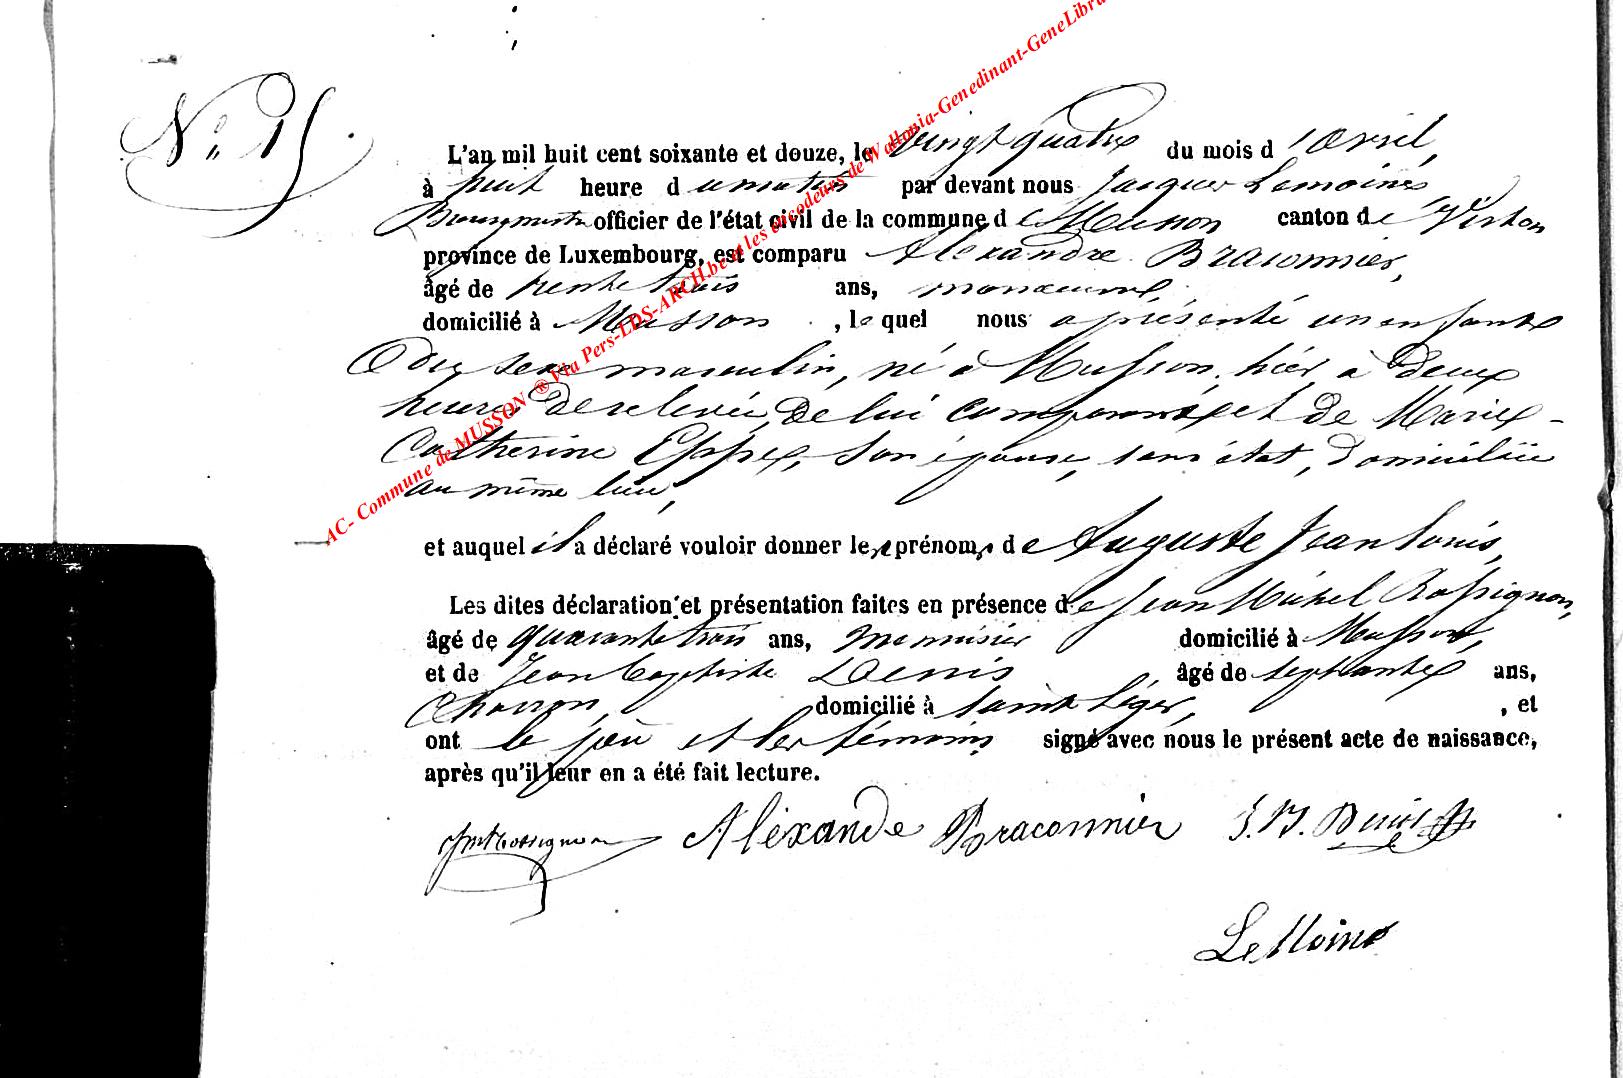 N° 15
L'an mil huit cent soixante et douze, le vingt quatre du mois d'Avril,
à huit heure du matin par devant nous Jacques Lemoine
Bourgmestre officier de l'état civil de la commune de Musson canton de Virton
province de Luxembourg, est comparu Alexandre Braconnier,
âgé de trente trois ans, manœuvre,
domicilié à Musson, lequel nous a présenté un enfant
du sexe masculin, né à Musson, hier à deux
heures de relevée, de lui comparant et de Marie-
Catherine Eppe, son épouse, sans état, domiciliée
au même lieu,
et auquel il a déclaré vouloir donner les prénoms de Auguste Jean Louis,
Les dites déclaration et présentation faites en présence de Jean Michel Rossignon,
âgé de quarante trois ans, menuisier domicilié à Musson,
et de Jean Baptiste Denis âgé de septante ans,
Charron, domicilié à Saint Léger, , et
ont le père et les témoins signé avec nous le présent acte de naissance,
après qu'il leur en a été fait lecture.
JM Rossignon Alexandre Braconnier J. B. Denis
LeMoine
AC- Commune de MUSSON ® Via Pers-LDS-ARCH.be et les encodeurs de Wallonia-Genedinant-GeneLibra